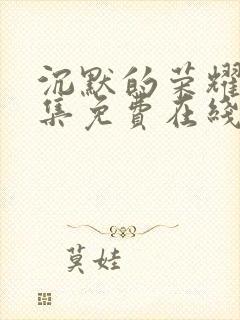 沉默的荣耀
集免费在线
莫娃